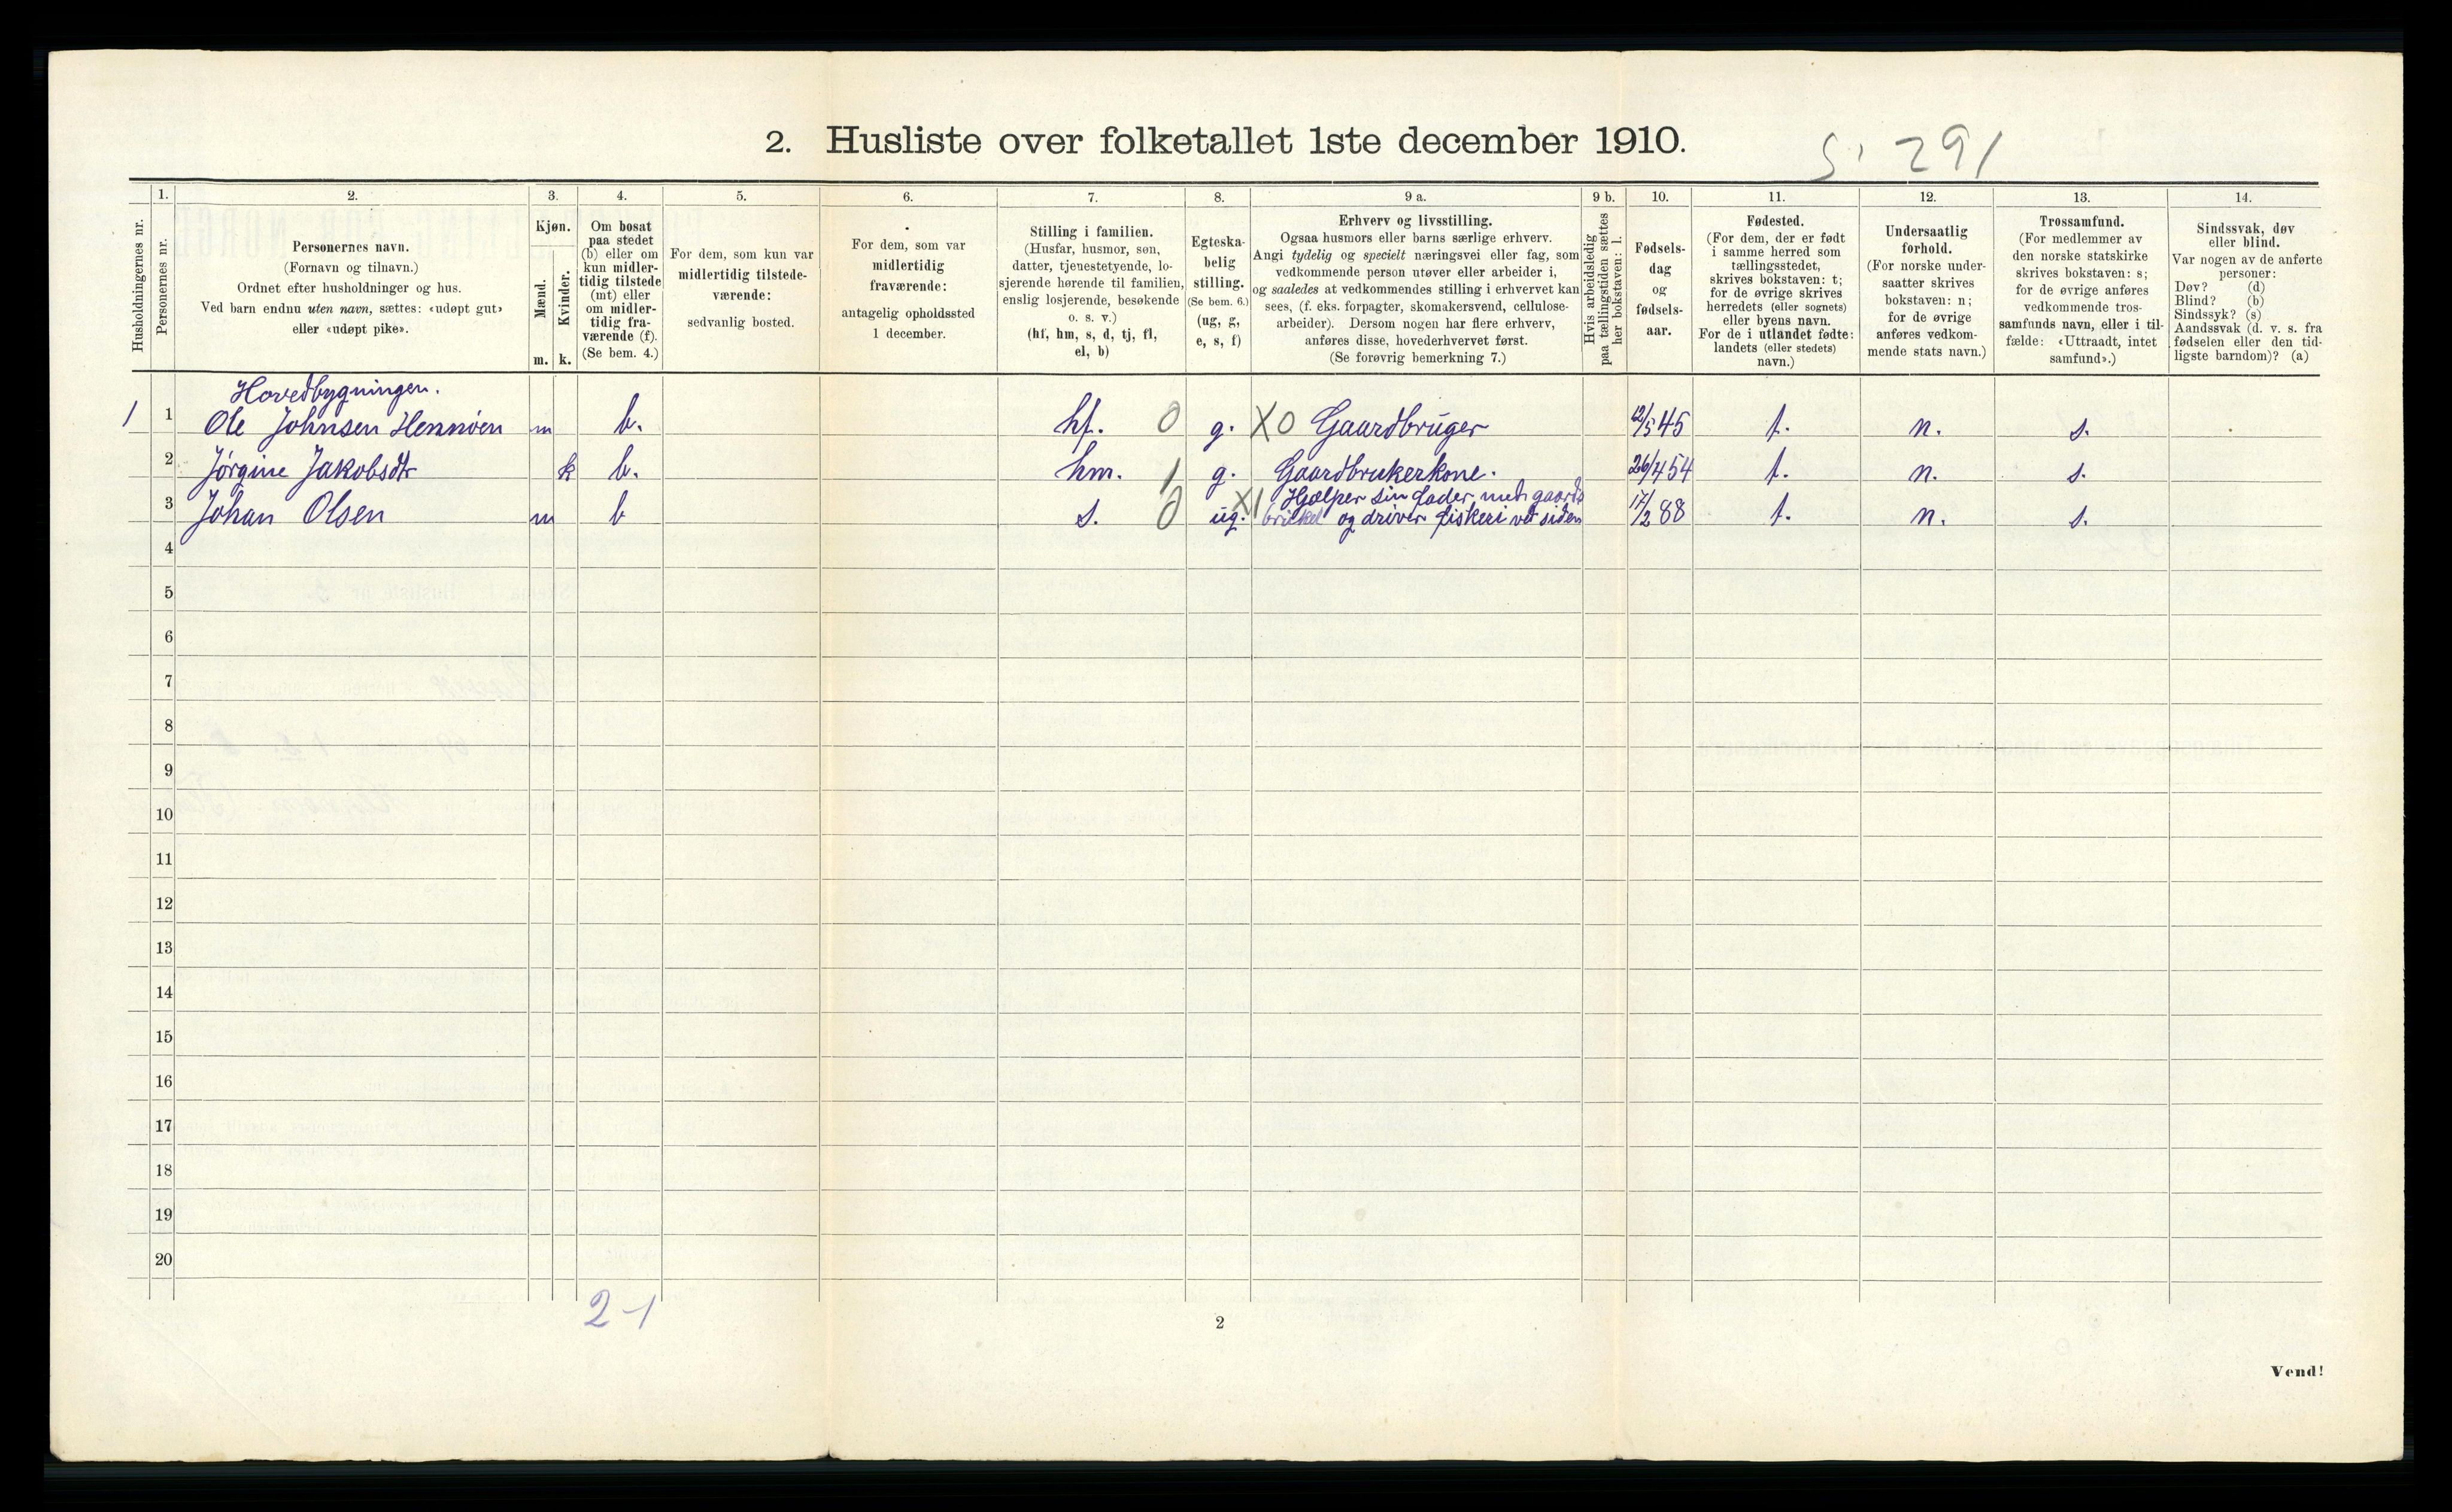 2. Husliste over folketallet 1ste december 1910.
S' 291
Husholdningernes nr.
1.
Personernes nr.
2.
Personernes navn.
(Fornavn og tilnavn.)
Ordnet efter husholdninger og hus.
Ved barn endnu uten navn, sættes: «udøpt gut»
eller «udøpt pike».
3.
Kjøn.
Mænd.
m.
Kvinder.
k.
4.
Om bosat
paa stedet
(b) eller om
kun midler-
tidig tilstede
(mt) eller
om midler-
tidig fra-
værende (f).
(Se bem. 4.)
5.
For dem, som kun var
midlertidig tilstede-
værende:
sedvanlig bosted.
6.
For dem, som var
midlertidig
fraværende:
antagelig opholdssted
1 december.
7.
Stilling i familien.
(Husfar, husmor, søn,
datter, tjenestetyende, lo-
sjerende hørende til familien,
enslig losjerende, besøkende
o. s. v.)
(hf, hm, s, d, tj, fl,
el, b)
8.
Egteska-
belig
stilling.
(Se bem. 6.)
(ug, g,
e, s, f)
9 a.
Erhverv og livsstilling.
Ogsaa husmors eller barns særlige erhverv.
Angi tydelig og specielt næringsvei eller fag, som
vedkommende person utøver eller arbeider i,
og saaledes at vedkommendes stilling i erhvervet kan
sees, (f. eks. forpagter, skomakersvend, cellulose-
arbeider). Dersom nogen har flere erhverv,
anføres disse, hovederhvervet først.
(Se forøvrig bemerkning 7.)
9 b.
Hvis arbeidsledig
paa tællingstiden sættes
her bokstaven: l.
10.
Fødsels-
dag
og
fødsels-
aar.
11.
Fødested.
(For dem, der er født
i samme herred som
tællingsstedet,
skrives bokstaven: t;
for de øvrige skrives
herredets (eller sognets)
eller byens navn.
For de i utlandet fødte:
landets (eller stedets)
navn.)
12.
Undersaatlig
forhold.
(For norske under-
saatter skrives
bokstaven: n;
for de øvrige
anføres vedkom-
mende stats navn.)
13.
Trossamfund.
(For medlemmer av
den norske statskirke
skrives bokstaven: s;
for de øvrige anføres
vedkommende tros-
samfunds navn, eller i til-
fælde: «Uttraadt, intet
samfund».)
14.
Sindssvak, døv
eller blind.
Var nogen av de anførte
personer:
Døv? (d)
Blind? (b)
Sindssyk? (s)
Aandssvak (d. v. s. fra
fødselen eller den tid-
ligste barndom)? (a)
Hovedbygningen.
1 1 Ole Johnsen Hennøen m b. hf. 0 g. X0 Gaardbruger 12/5 45 t. n. s.
2 Jørgine Jakobsdtr k b. hm. 1 g. Gaardbrukerkone. 26/4 54 t. n. s.
3 Johan Olsen m b s. 0 ug. X1 Hjælper sin fader med gaards
bruket og driver fiskeri ved siden 17/2 88 t. n. s.
4
5
6
7
8
9
10
11
12
13
14
15
16
17
18
19
20
2-1
2
Vend!